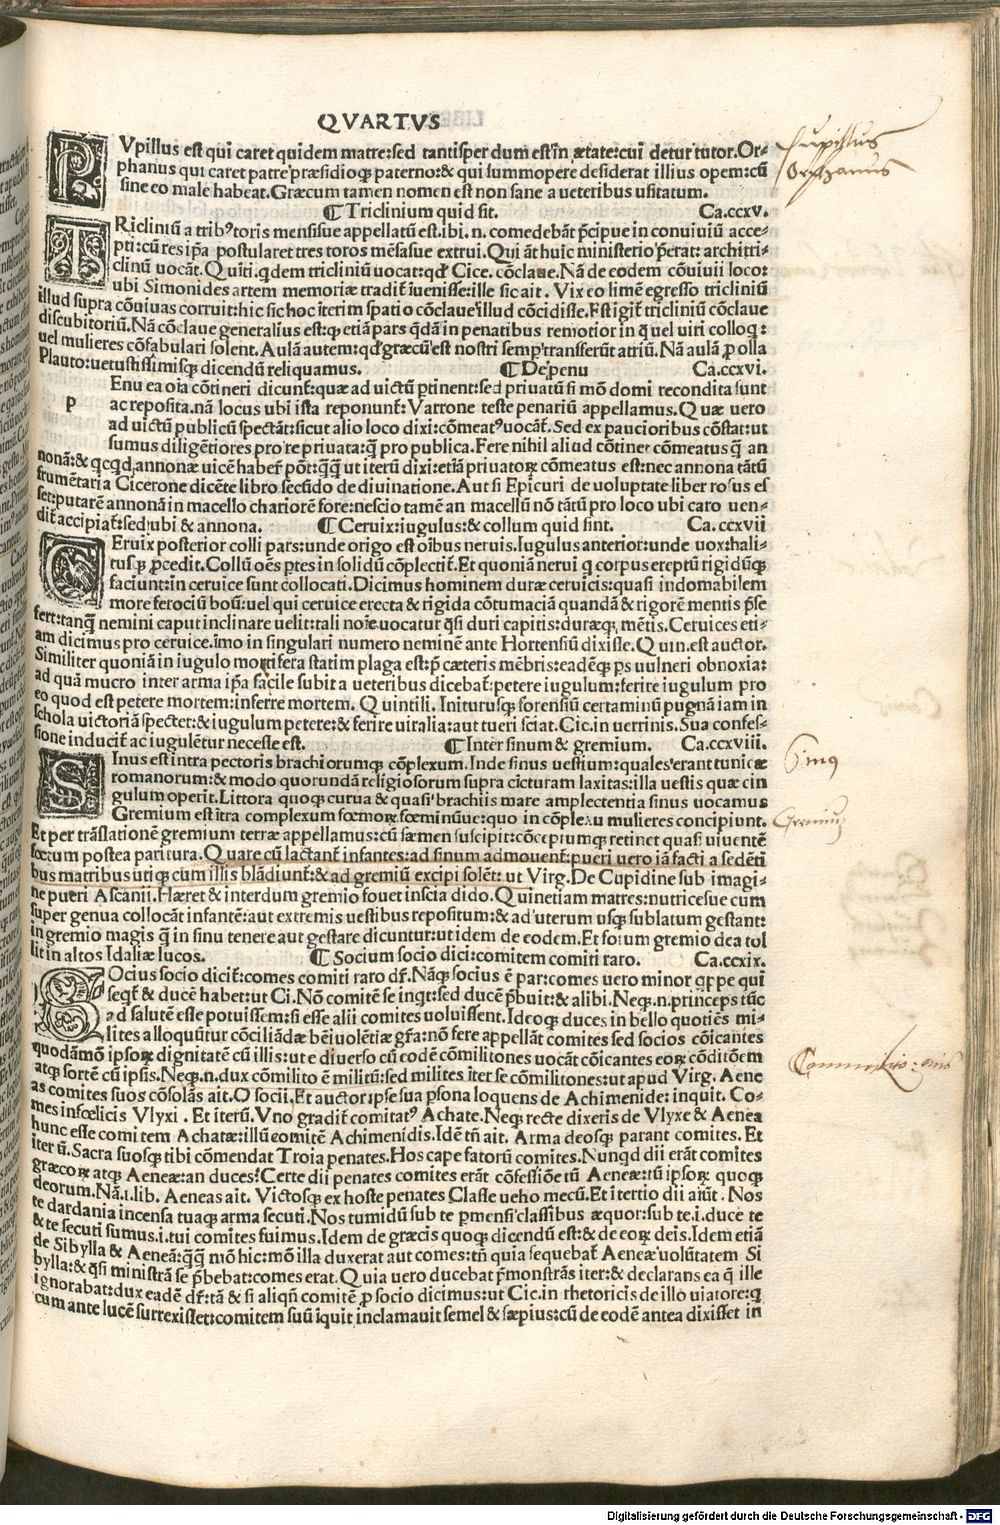 QVARTVS
PVpillus est qui caret quidem matre:sed tantisper dum est in ætate:cui detur tutor.Or-
phanus qui caret patre præsidioq; paterno:& qui summopere desiderat illius opem:cū
sine eo male habeat.Græcum tamen nomen est non sane a veteribus usitatum.
¶Triclinium quid sit. Ca.ccxv.
TRicliniū a trib⁹ toris mensisue appellatū est.ibi.n.comedebāt p̄cipue in conuiuiū acce-
pti:cū res ip̄a postularet tres toros mēsasue extrui.Qui āt huic ministerio p̄erat: architri-
clinū uocāt.Quīti.qdem tricliniū uocat:qd' Cice.cōclaue.Nā de eodem cōuiuii loco:
ubi Simonides artem memoriæ tradit̄ iuenisse:ille sic ait. Vix eo limē egresso tricliniū
illud supra cōuiuas corruit:hic sic hoc īterim spatio cōclaue illud cōcidisse.Est igit̄ tricliniū cōclaue
discubitoriū.Nā cōclaue generalius est:q etiā pars qdā in penatibus remotior in q uel uiri colloq:
uel mulieres cōfabulari solent.Aulā autem:qd' græcū est nostri semp transferūt atriū.Nā aulā p olla
Plauto:uetustissimisq; dicendū reliquamus. ¶De penu Ca.ccxvi.
p Enu ea oīa cōtineri dicunt̄:quæ ad uictū ptinent:sed priuatū si mō domi recondita sunt
ac reposita.nā locus ubi ista reponunt̄: Varrone teste penariū appellamus.Quæ uero
ad uictū publicū spectāt:sicut alio loco dixi:cōmeat⁹ uocāt̄.Sed ex paucioribus cōstat:ut
sumus diligētiores pro re priuata:q̄ pro publica.Fere nihil aliud cōtinet cōmeatus q̄ an
nonā:& qcqd annonæ uicē habet pōt:q̄q̄ ut iterū dixi:etiā priuatoꝝ cōmeatus est:nec annona tātū
frumētaria Cicerone dicēte libro secūdo de diuinatione.Aut si Epicuri de uoluptate liber rosus es
set:putarē annonā in macello chariorē fore:nescio tamē an macellū nō tātū pro loco ubi caro uen-
dit̄ accipiat̄:sed ubi & annona. ¶Ceruix:iugulus:& collum quid sint. Ca.ccxvii
CEruix posterior colli pars:unde origo est oībus neruis.Iugulus anterior:unde uox:hali-
tusq; p̄cedit.Collū oēs ptes in solidū cōplectit̄.Et quoniā nerui q corpus ereptū rigidūq;
faciunt:in ceruice sunt collocati.Dicimus hominem duræ ceruicis:quasi indomabilem
more ferociū boū:uel qui ceruice erecta & rigida cōtumaciā quandā & rigorē mentis p̄se
fert:tanq̄ nemini caput inclinare uelit:tali noīe uocatur q̄si duri capitis:duræq; mētis.Ceruices eti-
am dicimus pro ceruice.īmo in singulari numero neminē ante Hortensiū dixisse.Quin.est auctor.
Similiter quoniā in iugulo mortifera statim plaga est:p̄ cæteris mēbris:eadēq; ps uulneri obnoxia:
ad quā mucro inter arma ip̄a facile subit a ueteribus dicebat̄:petere iugulum:ferire iugulum pro
eo quod est petere mortem:inferre mortem. Quintili. Initurusq; forensiū certaminū pugnā iam in
schola uictoriā spectet:& iugulum petere:& ferire uitalia:aut tueri sciat.Cic.in uerrinis.Sua confes-
sione inducit̄ ac iugulētur necesse est. ¶Inter sinum & gremium. Ca.ccxviii.
SInus est intra pectoris brachiorumq; cōplexum.Inde sinus uestium:quales erant tunicæ
romanorum:& modo quorundā religiosorum supra cīcturam laxitas:illa uestis quæ cin
gulum operit.Littora quoq; curua & quasi brachiis mare amplectentia sinus uocamus
Gremium est ītra complexum fœmorꝝ fœminūue:quo in cōplexu mulieres concipiunt.
Et per trāslationē gremium terræ appellamus:cū sæmen suscipit:cōceptumq; retinet quasi uiuentē
fœtum postea paritura.Quare cū lactant̄ infantes:ad sinum admouent̄:pueri uero iā facti a sedēti
bus matribus utiq; cum illis blādiunt̄:& ad gremiū excipi solēt: ut Virg.De Cupidine sub imagi-
ne pueri Ascanii.Hæret & interdum gremio fouet inscia dido.Quinetiam matres:nutricesue cum
super genua collocāt infantē:aut extremis uestibus repositum:& ad uterum usq; sublatum gestant:
in gremio magis q̄ in sinu tenere aut gestare dicuntur:ut idem de eodem.Et fotum gremio dea tol
lit in altos Idaliæ lucos. ¶Socium socio dici:comitem comiti raro. Ca.ccxix.
SOcius socio dicit̄:comes comiti raro dr̄.Nāq; socius ē par:comes uero minor qppe qui
seqt̄ & ducē habet:ut Ci.Nō comitē se inqt:sed ducē p̄buit:& alibi.Neq;.n.princeps tūc
ad salutē esse potuissem:si esse alii comites uoluissent.Ideoq; duces in bello quotiēs mi-
lites alloquūtur cōciliādæ bēiuolētiæ gr̄a:nō fere appellāt comites sed socios cōicantes
quodāmō ipsoꝝ dignitatē cū illis:ut e diuerso cū eodē cōmilitones uocāt cōicantes eoꝝ cōditōem
atq; sortē cū ipsis.Neq;.n.dux cōmilito ē militū:sed milites īter se cōmilitones:ut apud Virg. Aene
as comites suos cōsolās ait.O socii.Et auctor ipse sua psona loquens de Achimenide: inquit. Co-
mes infœlicis Vlyxi . Et īterū.Vno gradit̄ comitat⁹ Achate.Neq; recte dixeris de Vlyxe & Aenea
hunc esse comitem Achatæ:illū comitē Achimenidis.Idē tn̄ ait. Arma deosq; parant comites. Et
iterū.Sacra suosq; tibi cōmendat Troia penates.Hos cape fatorū comites.Nunqd dii erāt comites
græcoꝝ atq; Aeneæ:an duces?Certe dii penates comites erāt cōfessiōe tū Aeneæ:tū ipsoꝝ quoq;
deorum.Nā.i.lib. Aeneas ait. Victosq; ex hoste penates Classe ueho mecū.Et ī tertio dii aiūt . Nos
te dardania incensa tuaq; arma secuti.Nos tumidū sub te pmensi classibus æquor:sub te.i.duce te
& te secuti sumus.i.tui comites fuimus.Idem de græcis quoq; dicendū est:& de eoꝝ deis.Idem etiā
de Sibylla & Aeneā:q̄q̄ mō hic:mō illa duxerat aut comes:tn̄ quia sequebat̄ Aeneæ uolūtatem Si
bylla:& q̄si ministrā se p̄bebat:comes erat.Quia uero ducebat p̄monstrās iter:& declarans ea q̄ ille
ignorabat:dux eadē dr̄:tā & si aliqn̄ comitē p socio dicimus:ut Cic.in rhetoricis de illo uiatore:q
cum ante lucē surrexisset:comitem suū īquit inclamauit semel & sæpius:cū de eodē antea dixisset in
Pupillus
Orphanus
Sinus
Gremiū
Digitalisierung gefördert durch die Deutsche Forschungsgemeinschaft - DFG